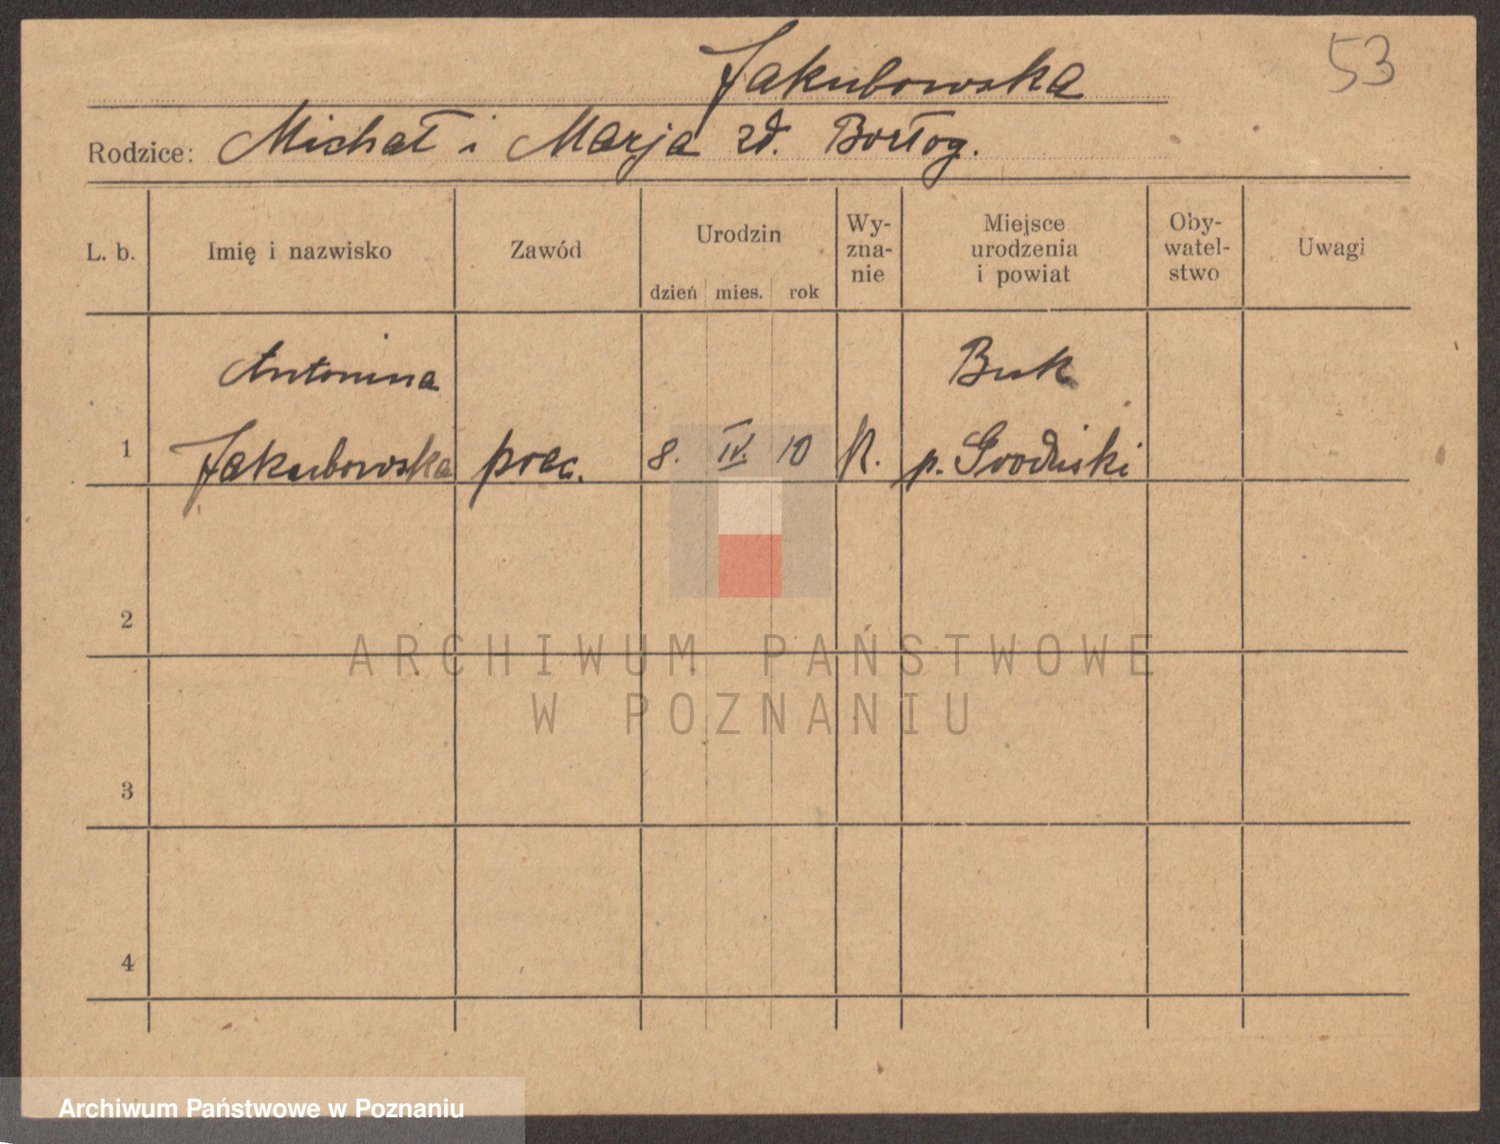 53
Jakubowska
Rodzice: Michał i Marja zd. Bortog.
L. b.
Imię i nazwisko
Zawód
Urodzin
dzień mies. rok
Wy-
zna-
nie
Miejsce
urodzenia
i powiat
Oby-
watel-
stwo
Uwagi
Antonina Buk
1 Jakubowska prac. 8. IV. 10 k. p. Grodziski
2
ARCHIWUM PAŃSTWOWE
W POZNANIU
3
4
Archiwum Państwowe w Poznaniu